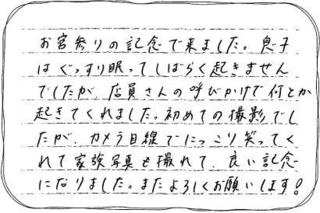 お宮参りの記念で来ました。息子
はぐっすり眠ってしばらく起きません
でしたが、店員さんの呼びかけで何とか
起きてくれました。初めての撮影でし
たが、カメラ目線でにっこり笑ってく
れて家族写真も撮れて、良い記念
になりました。またよろしくお願いします!